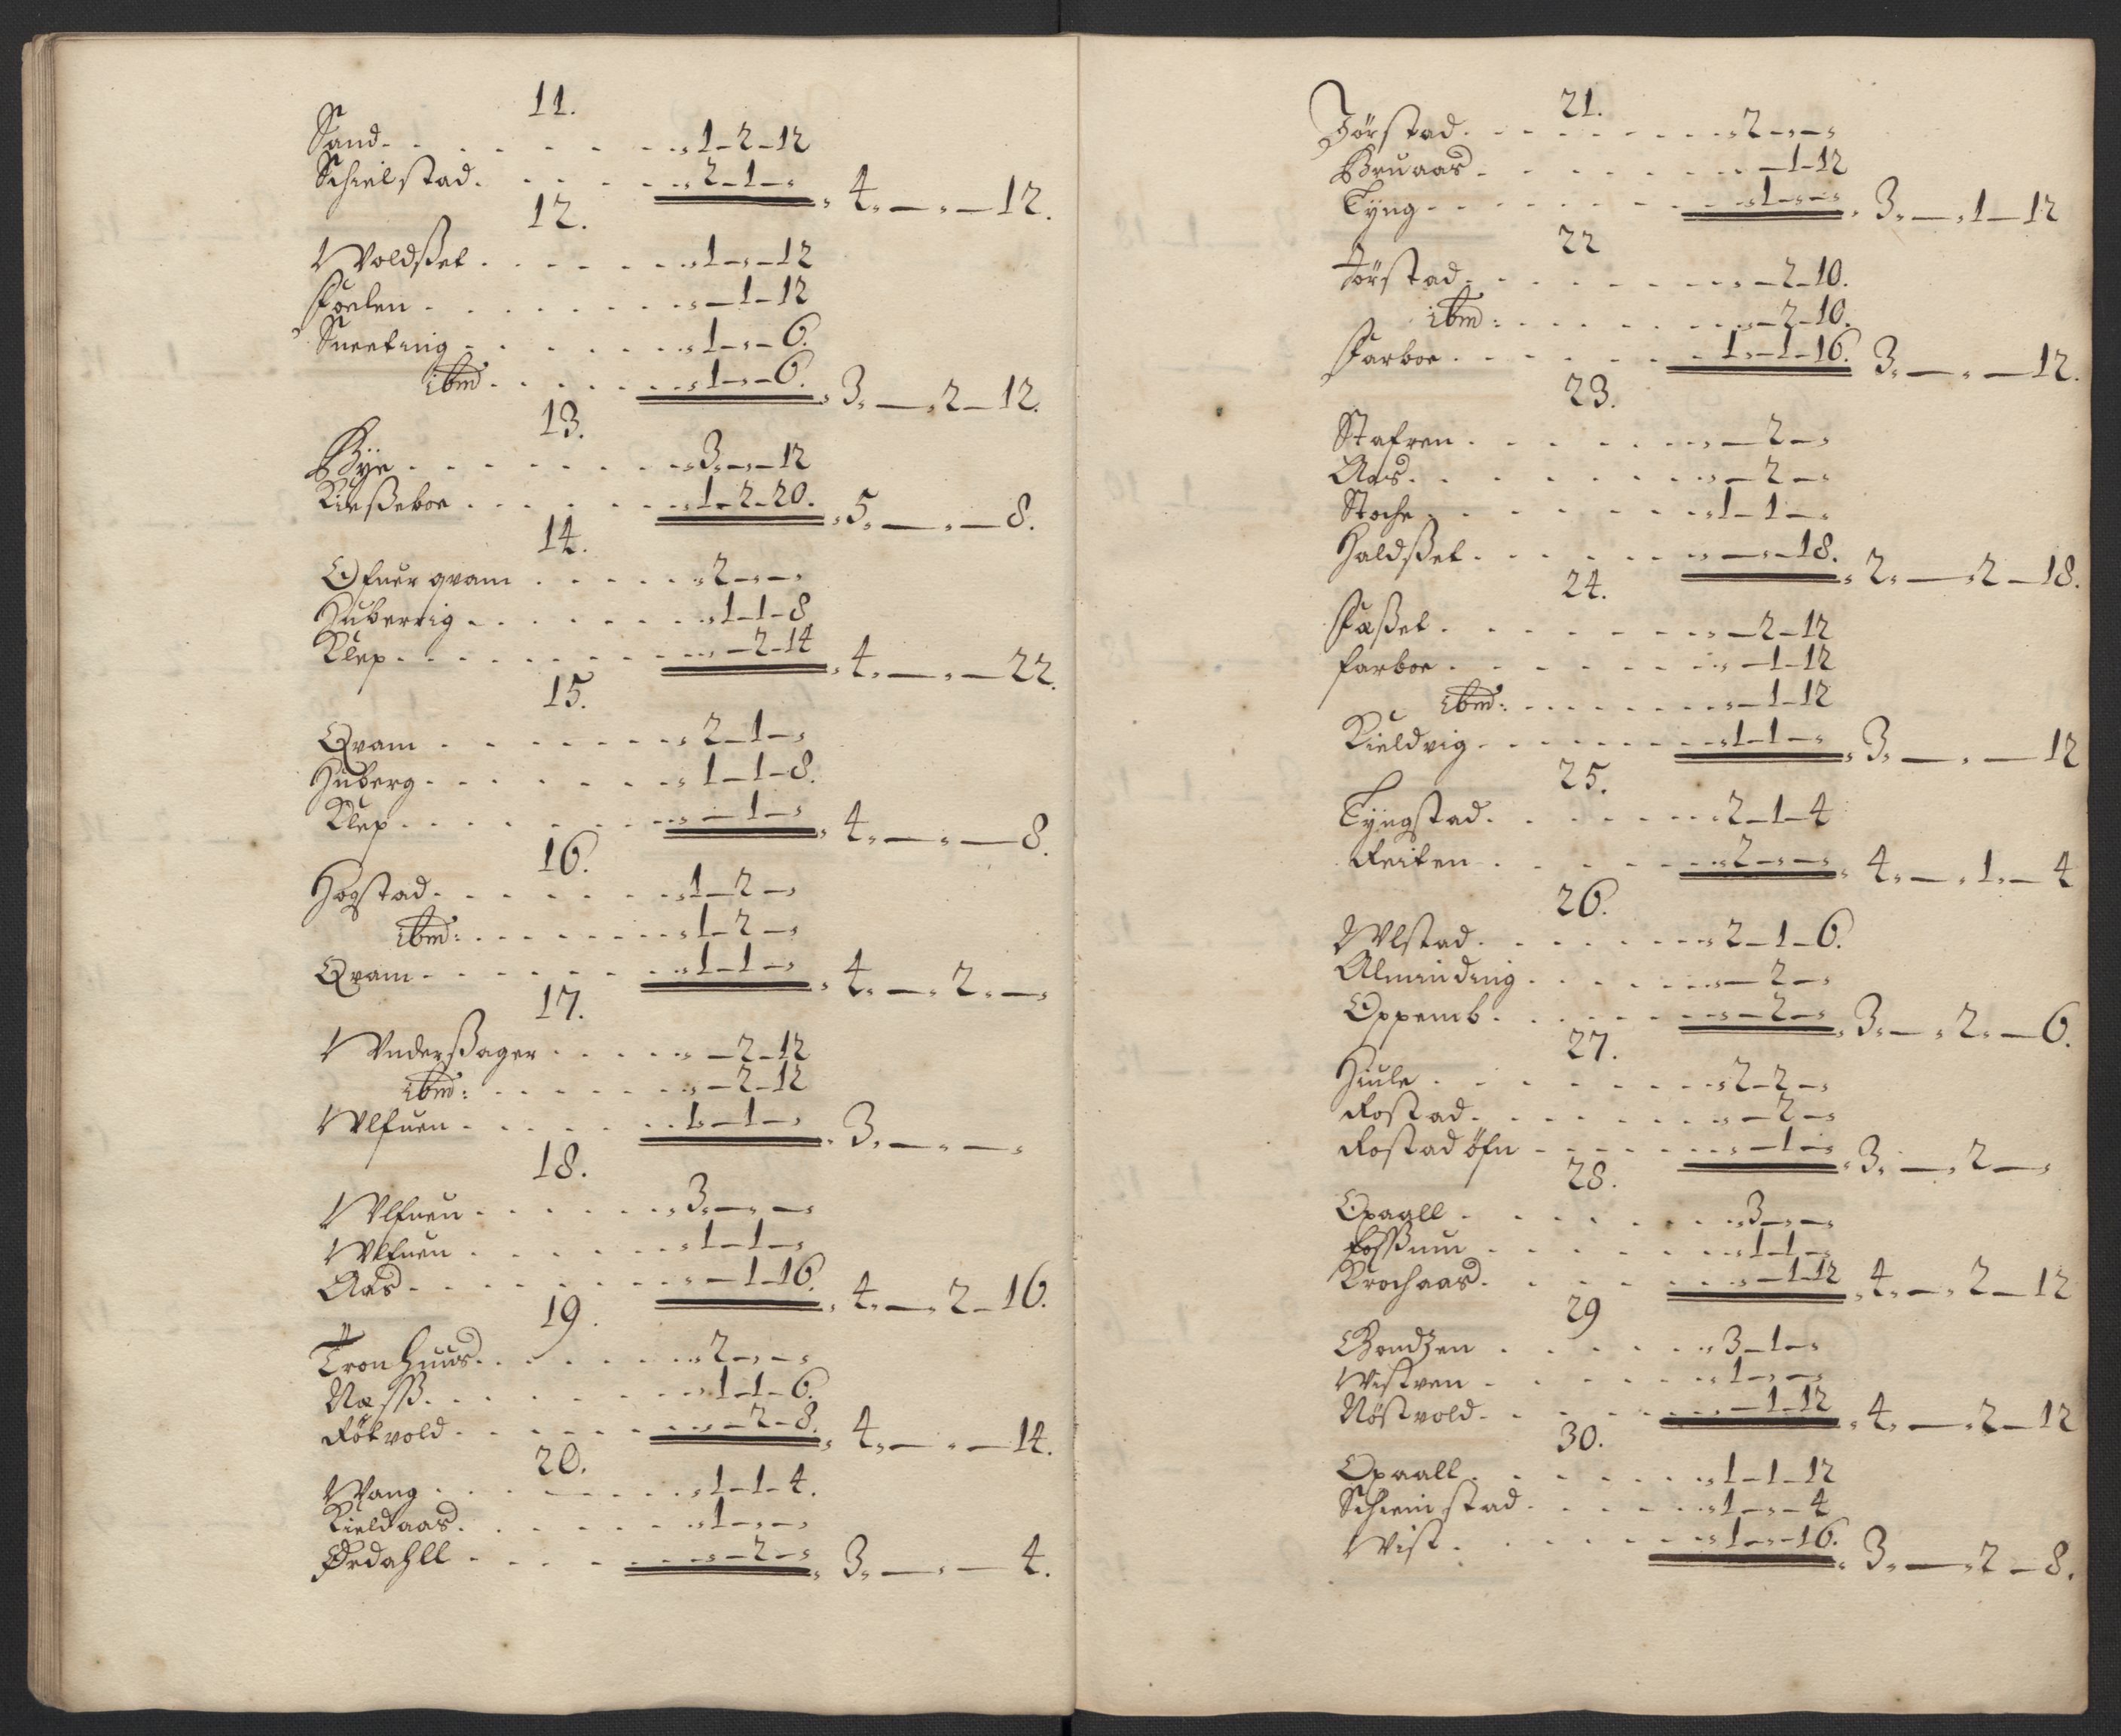 11.
Sand . . . . . . . . 1 – 2 – 12
Schielstad . . . . . . 2 – 1 – „ „ 4. — „ — 12.
12.
Woldßet . . . . . . . 1 – „ – 12
Foelen . . . . . . . . – 1 – 12
Sneeting . . . . . . . 1 – „ – 6.
ibm . . . . . . . 1 – „ – 6. „ 3. — „ 2 — 12.
13.
Bÿe . . . . . . . . 3. – „ – 12
Kirßeboe . . . . . . . 1 – 2 – 20. „ 5. — „ — 8.
14.
Ofuer qvam . . . . . „ 2 – „ – „
Huberrig . . . . . . . „ 1 – 1 – 8
Klep . . . . . . . . „ – 2 – 14 „ 4. — „ — 22.
15.
Qvam . . . . . . . „ 2 – 1 – „
Huberg . . . . . . . „ 1 – 1 – 8.
Klep . . . . . . . . „ – 1 – „ „ 4. — „ — 8.
16.
Hogstad . . . . . . . „ 1 – 2 – „
ibm: . . . . . . . . „ 1 – 2 – „
Qvam . . . . . . . „ 1 – 1 – „ „ 4. — „ 2. — „
17.
Vnderßager . . . . . „ – 2 – 12
ibm: . . . . . . . „ – 2 – 12
Vlfuen . . . . . . . 1. – 1 – „ „ 3. — „ — „
18.
Vlfuen . . . . . . . „ 3. – „ – „
Vlfuen . . . . . . . „ 1 – 1 – „
Aas . . . . . . . . „ – 1 – 16. „ 4. — „ 2 – 16.
19.
Tronhuus . . . . . . . „ 2 – „ – „
Næss . . . . . . . „ 1 – 1 – 6.
Rökvold . . . . . . . „ – 2 – 8. „ 4. — „ — 14.
20.
Wang . . . . . . . „ 1 – 1 – 4.
Kieldaas . . . . . . . „ 1 – „ – „
Ørdahll . . . . . . . „ – 2 – „ „ 3. — „ — 4.
21.
Jörstad . . . . . . . „ 2 – „ – „
Bruaas . . . . . . . – 1 – 12
Tÿng . . . . . . . . „ 1 – „ – „ „ 3. — „ 1 — 12
22
Jörstad . . . . . . . „ – 2 – 10.
ibm: . . . . . . . „ – 2 – 10.
Farboe . . . . . . . 1. – 1 – 16. 3. — „ — 12.
23.
Stafren . . . . . . . „ – 2 – „
Aas . . . . . . . . „ – 2 – „
Stoche . . . . . . . „ 1 – 1 – „
Haldßet . . . . . . . „ – „ – 18. „ 2. — „ 2 – 18.
24.
Fæßet . . . . . . . „ – 2 – 12
farboe . . . . . . . „ – 1 – 12
ibm: . . . . . . . „ – 1 – 12
Kieldvig . . . . . . . „ 1 – 1 – „ „ 3. — „ — 12
25.
Tÿngstad . . . . . . . 2 – 1 – 4
Reiten . . . . . . . „ 2 – „ – „ „ 4. — „ 1. — 4
26.
Vlstad . . . . . . . „ 2 – 1 – 6.
Alminding . . . . . . „ – 2 – „
Oppemb . . . . . . . „ – 2 – „ „ 3. — „ 2. — 6.
27.
Hiule . . . . . . . „ 2 – 2 – „
Rostad . . . . . . . „ – 2 – „
Rostad öfn . . . . . . „ – 1 – „ „ 3. — „ 2 — „
28.
Opaall . . . . . . . „ 3 – „ – „
Fossum . . . . . . . „ 1 – 1 – „
Krochaas . . . . . . . „ – 1 – 12 „ 4. — „ 2 — 12
29
Bondzen . . . . . . . „ 3 – 1 – „
Wistven . . . . . . . „ 1 – „ – „
Nöstvold . . . . . . . „ – 1 – 12 „ 4. — „ 2 — 12
30.
Opaall . . . . . . . „ 1 – 1 – 12
Schiemstad . . . . . . „ 1 – „ – 4
Wist . . . . . . . . „ 1 – „ – 16. „ 3. — „ 2 – 8.